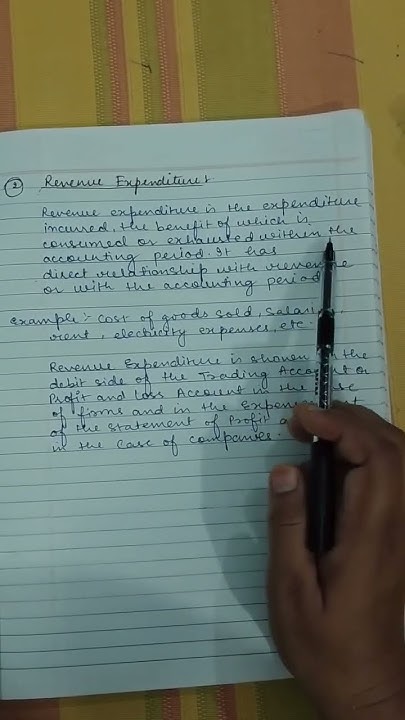 ② Revenue Expenditure:
Revenue expenditure is the expenditure
incurred, the benefit of which is
consumed or exhausted within the
accounting period. It has
direct relationship with revenue
or with the accounting period
Example:- Cost of goods sold,
rent, electricity expenses, etc.
Revenue Expenditure is shown the
debit side of the Trading or
Profit and Loss Account in the
of firms and in the
of the statement of Profit
in the case of companies.